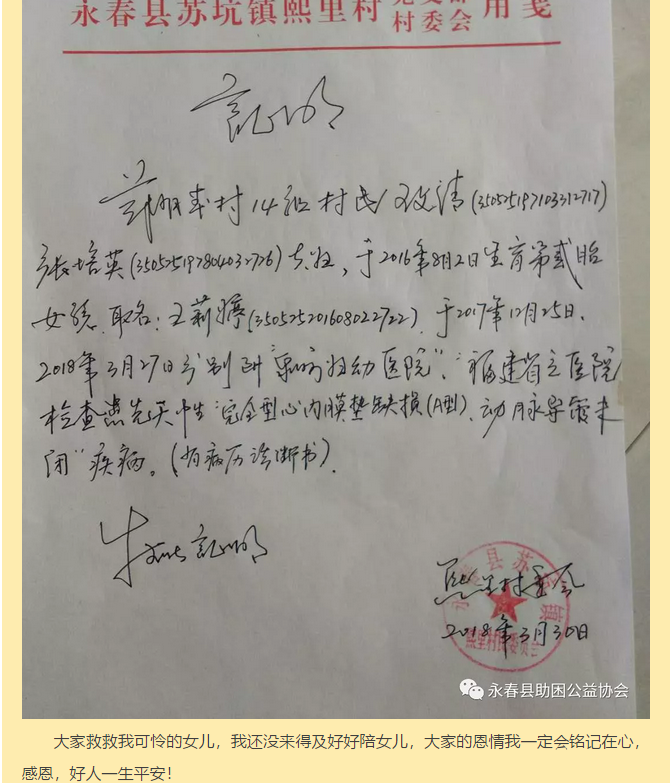 永春县苏坑镇熙里村 党支部 用笺
村委会
证明
兹有本村14组村民王文清(350525197103312717)
张培英(350525197804032726)夫妇，于2016年8月2日生育第贰胎
女孩.取名：王莉婷(350525201608022722).于2017年12月25日、
2018年3月27日分别到"泉州妇幼医院"、"福建省立医院
检查患先天性"完全型心内膜垫缺损(A型)、动脉导管未
闭"疾病。(有病历诊断书).
特此证明
熙里村委会
2018年3月30日
永春县苏坑镇
熙里村民委员会
永春县助困公益协会
大家救救我可怜的女儿，我还没来得及好好陪女儿，大家的恩情我一定会铭记在心，
感恩，好人一生平安！